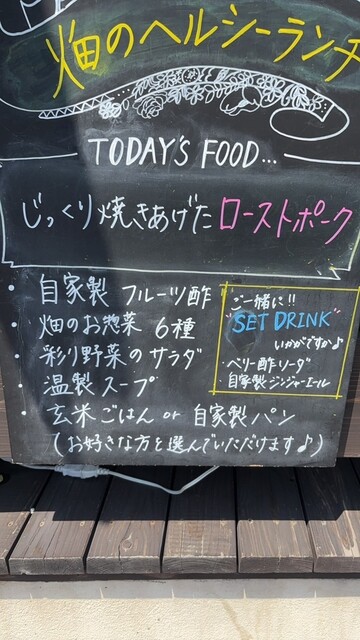 畑のヘルシーランチ
TODAY'S FOOD...
じっくり焼きあげたローストポーク
・自家製フルーツ酢
・畑のお惣菜 6種
・彩り野菜のサラダ
・温製スープ
・玄米ごはん or 自家製パン
(お好きな方を選んでいただけます♪)
ご一緒に!!
"SET DRINK"
いかがですか♪
・ベリー酢ソーダ
・自家製ジンジャーエール